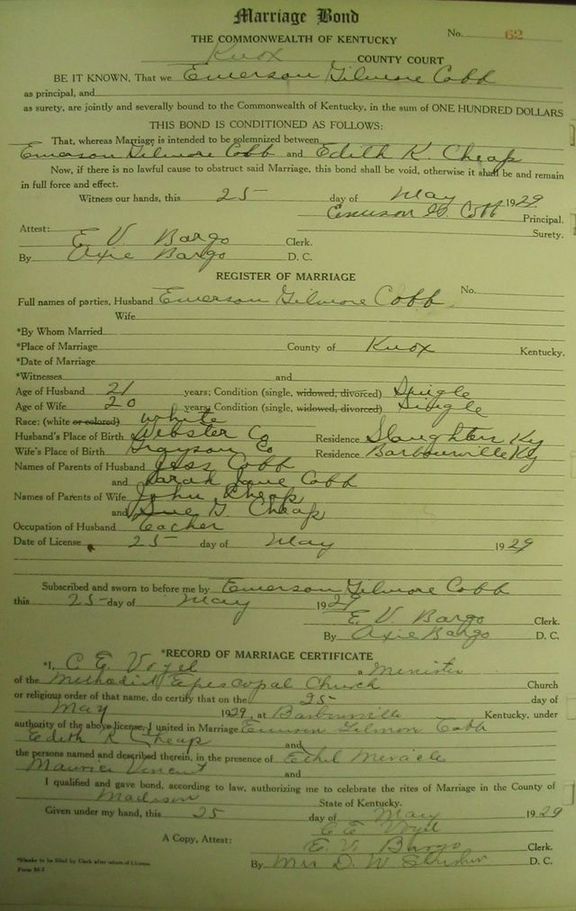 Marriage Bond
THE COMMONWEALTH OF KENTUCKY
No. 62
Knox COUNTY COURT
BE IT KNOWN, That we Emerson Gilmore Cobb
as principal, and
as surety, are jointly and severally bound to the Commonwealth of Kentucky, in the sum of ONE HUNDRED DOLLARS
THIS BOND IS CONDITIONED AS FOLLOWS:
That, whereas Marriage is intended to be solemnized between
Emerson Gilmore Cobb and Edith K. Cheap
Now, if there is no lawful cause to obstruct said Marriage, this bond shall be void, otherwise it shall be and remain
in full force and effect.
Witness our hands, this 25 day of May 1929
Emerson G. Cobb Principal.
Surety.
Attest:
E. V. Bargo Clerk.
By Oxie Bargo D. C.
REGISTER OF MARRIAGE
No.
Full names of parties, Husband Emerson Gilmore Cobb
Wife
*By Whom Married
*Place of Marriage County of Knox Kentucky.
*Date of Marriage
*Witnesses and
Age of Husband 21 years; Condition (single, widowed, divorced) Single
Age of Wife 20 years; Condition (single, widowed, divorced) Single
Race: (white or colored) white
Husband's Place of Birth Webster Co Residence Slaughters Ky
Wife's Place of Birth Grayson Co Residence Barbourville Ky
Names of Parents of Husband Jess Cobb
and Sarah Jane Cobb
Names of Parents of Wife John Cheap
and Sue G Cheap
Occupation of Husband Teacher
Date of License 25 day of May 1929
Subscribed and sworn to before me by Emerson Gilmore Cobb
this 25 day of May 1929
E. V. Bargo Clerk.
By Oxie Bargo D. C.
*RECORD OF MARRIAGE CERTIFICATE
*I, C. E. Vogel a Minister
of the Methodist Episcopal Church Church
or religious order of that name, do certify that on the 25 day of
May 1929, at Barbourville Kentucky, under
authority of the above license, I united in Marriage Gilmore Cobb
Edith K Cheap and
the persons named and described therein, in the presence of Ethel Miracle
Maurice Vincent and
I qualified and gave bond, according to law, authorizing me to celebrate the rites of Marriage in the County of
Madison State of Kentucky.
Given under my hand, this 25 day of May 1929
C E Vogel
A Copy, Attest: E. V. Bargo Clerk.
By Mrs D. W. D. C.
*Blanks to be filled by Clerk after return of License